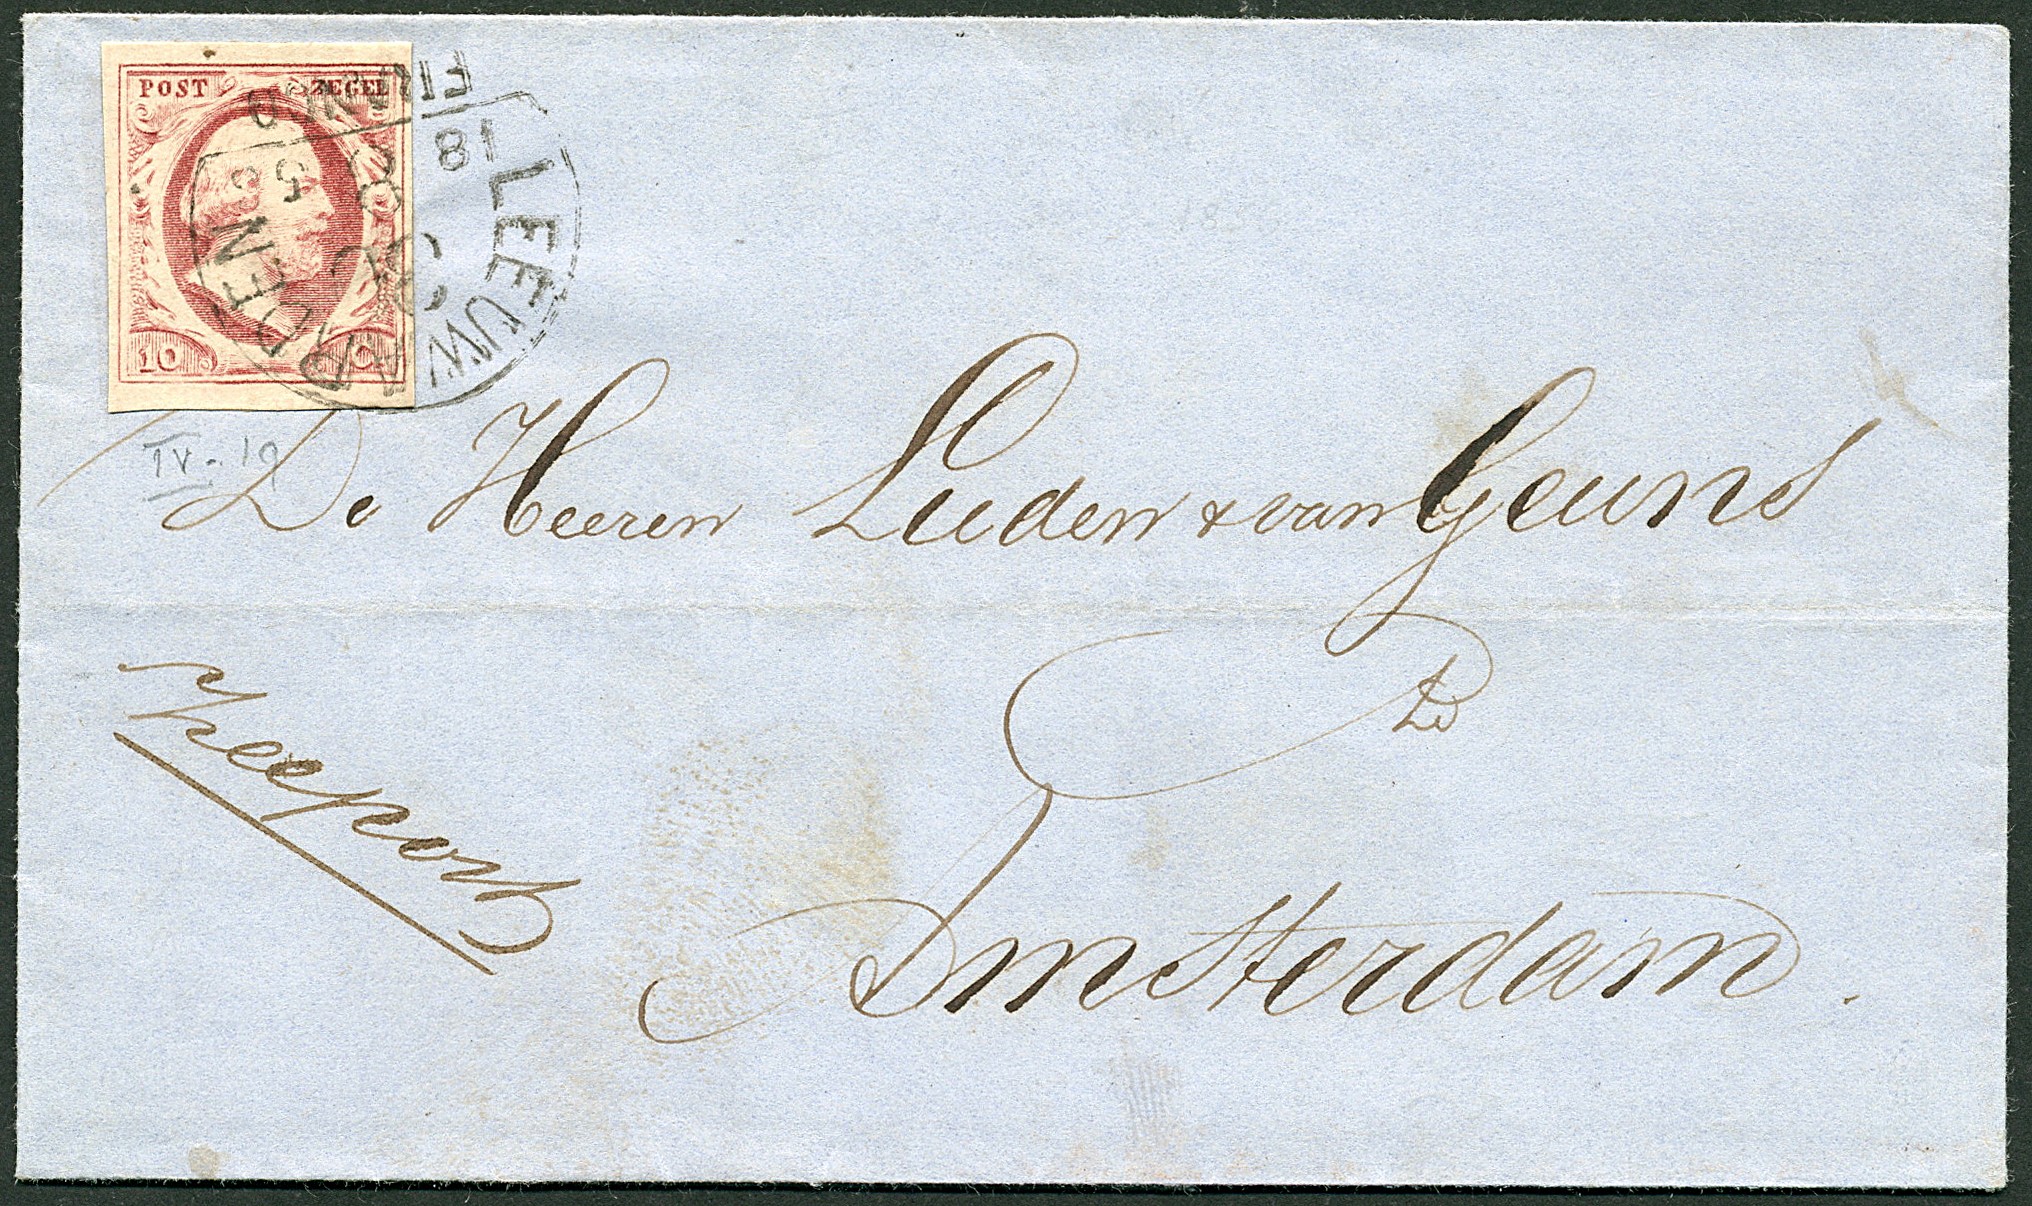 POST ZEGEL
10 C
LEEUWARDEN
FRANCO
18
IV - 19
De Heeren Luden & van Geuns
te
Amsterdam.
Zeepost